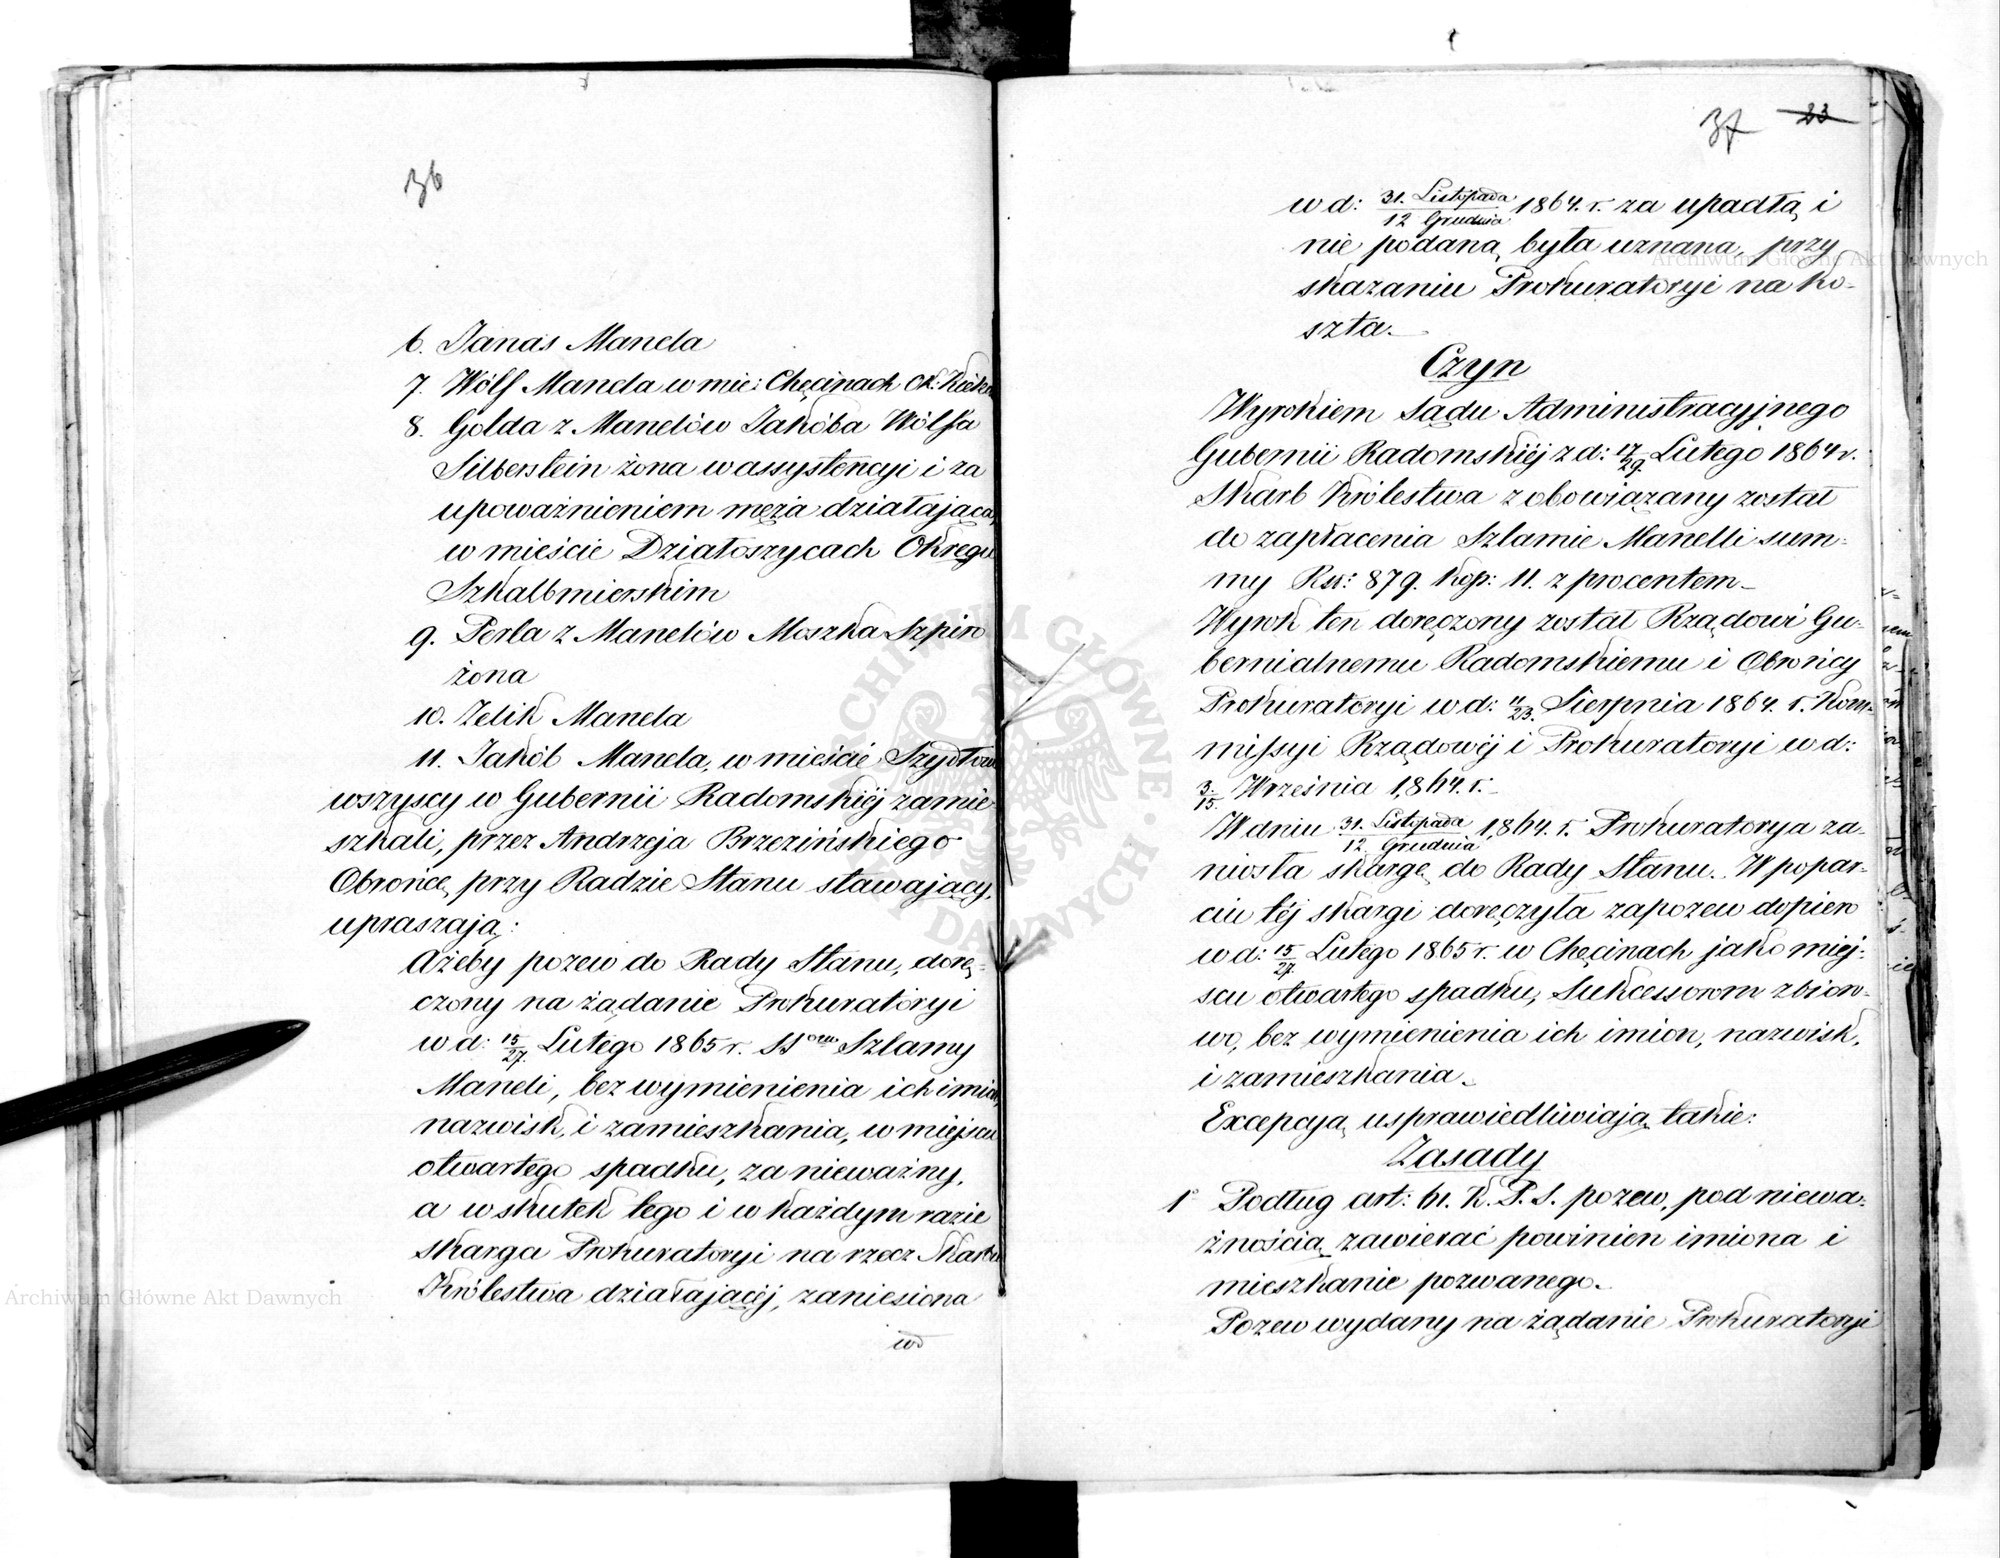 36
6. Janas Manela
7. Wólf Manela w mie: Chęcinach Ok:
8. Golda z Manelów Jakóba Wólfa
Silberstein żona w assystencyi i za
upoważnieniem męża działająca,
w mieście Działoszycach Okręgu
Szkalbmierskim
9. Perla z Manelów Moszka Szpiro
żona
10. Zelik Manela
11. Jakób Manela, w mieście
wszyscy w Gubernii Radomskiéj zamie-
szkali, przez Andrzeja Brzezińskiego
Obrońcę przy Radzie Stanu stawający,
upraszają:
Ażeby pozew do Rady Stanu, dorę-
czony na żądanie Prokuratoryi
w d: 15/27. Lutego 1865 r. SSom Szlamy
Maneli, bez wymienienia ich imion,
nazwisk, i zamieszkania, w miejscu
otwartego spadku, za nieważny,
a w skutek tego i w każdym razie
skarga Prokuratoryi na rzecz Skarbu
Królestwa działającéj, zaniesiona
w d
37 23
w d: 31. Listopada/12 Grudnia 1864. r. za upadłą i
nie podaną była uznana, przy
skazaniu Prokuratoryi na ko-
szta.
Czyn
Wyrokiem Sądu Administracyjnego
Gubernii Radomskiéj z d: 17/29. Lutego 1864 r.
Skarb Królestwa zobowiązany został
do zapłacenia Szlamie Manelli sum-
my Rsr: 879. kop: 11. z procentem
Wyrok ten doręczony został Rządowi Gu-
bernialnemu Radomskiemu i Obrońcy
Prokuratoryi w d: 11/23. Sierpnia 1864. r. Kom-
missyi Rządowéj i Prokuratoryi w d:
3/15. Września 1864. r.
W dniu 31. Listopada/12. Grudnia 1864. r. Prokuratorya za-
niosła skargę do Rady Stanu. W popar-
ciu téj skargi doręczyła zapozew dopiero
w d: 15/27. Lutego 1865 r. w Chęcinach jako miej-
scu otwartego spadku, Sukcessorom zbioro-
wo, bez wymienienia ich imion, nazwisk,
i zamieszkania.
Excepcyą usprawiedliwiają takie:
Zasady
1° Podług art: 61. K. P. S. pozew, pod niewa-
żnością zawierać powinien imiona i
mieszkanie pozwanego.
Pozew wydany na żądanie Prokuratoryi
Archiwum Główne Akt Dawnych
Archiwum Główne Akt Dawnych
ARCHIWUM GŁÓWNE AKT DAWNYCH